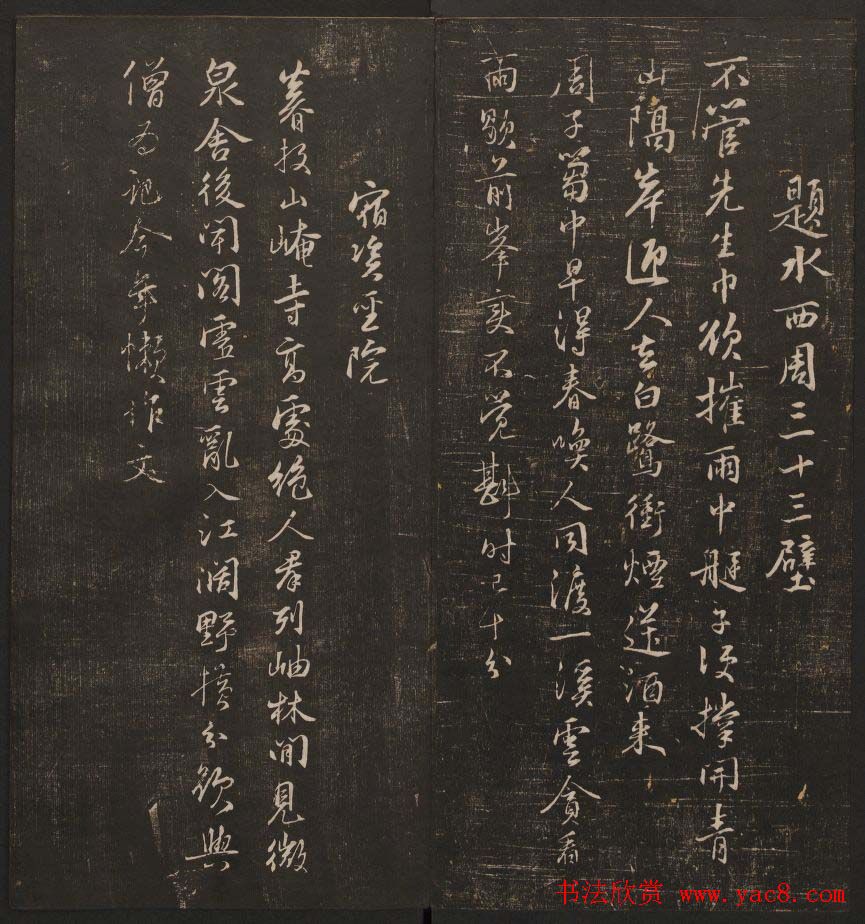 題水西周三十三壁
不管先生巾欲摧雨中艇子便撑開青
山隔岸迎人去白鷺衝煙送酒來
周子篘中早得春喚人同渡一溪雲貪看
雨歇前峯変不覺斟时已十分
宿資聖院
暮投山崦寺高處絶人羣列岫林間見微
泉舍後聞閣虚雲亂入江闊野横分欲與
僧為記今年懶作文
书法欣赏 www.yac8.com